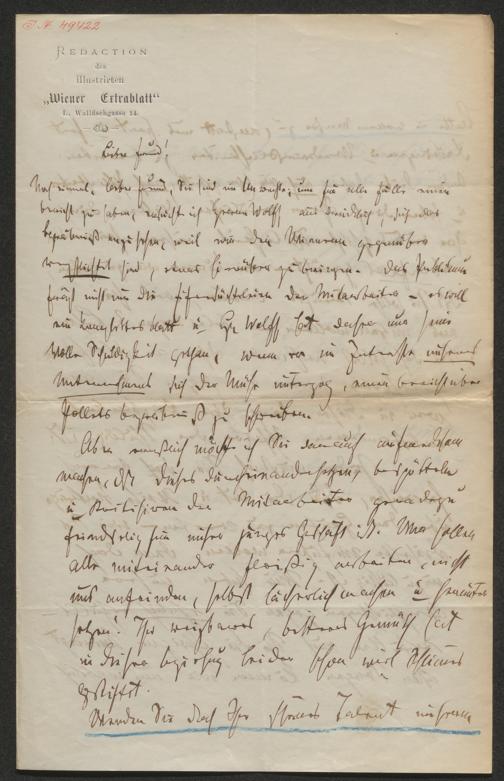 I.N. 49422
REDACTION
des
Illustrirten
„Wiener Extrablatt“
I., Walfischgasse 14.
Lieber Freund!
Noch einmal, lieber Freund, Sie sind im Unrechte; um für alle Fälle einen
Bericht zu haben, ersuchte ich Herrn Wolff ausdrücklich, sich das
Begräbniß anzusehen, weil wir den Wienern gegenüber
verpflichtet sind, etwas hierüber zu bringen. Das Publikum
frägt nicht um die Eifersüchteleien der Mitarbeiter – es will
ein und Hr. Wolff hat daher nur seine
volle Schuldigkeit gethan, wenn er im Interesse unseres
Unternehmens sich der Mühe unterzog, einen Bericht über
Begräbniß zu schreiben.
Aber möchte ich Sie darauf aufmerksam
machen, daß dieses bespötteln
u. kritisiren der Mitarbeiter geradezu
feindselig für unser junges Geschäft ist. Wir sollen
alle miteinander fleißig arbeiten, nicht
uns anfeinden, selbst lächerlich machen u.
setzen! Ihr bitteres Gemüth hat
in dieser Beziehung leider schon viel Schlimmes
gestiftet.
Wenden Sie doch Ihr schönes Talent unserem